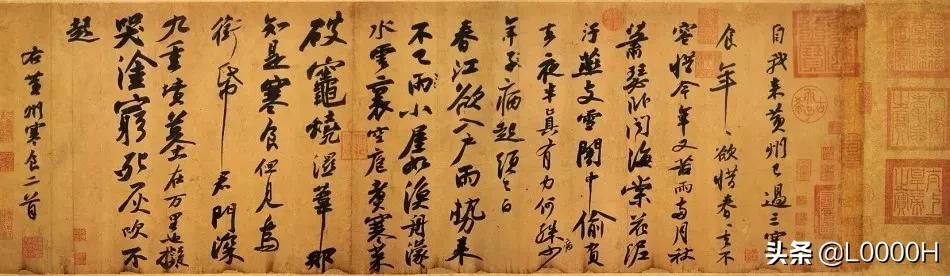 自我來黃州已過三寒
食年々欲惜春々去不
容惜今年又苦雨兩月秋
蕭瑟卧聞海棠花泥
汙燕支雪闇中偷負
去夜半真有力何殊病少
年子病起須已白
春江欲入戶雨勢來
不已雨小屋如漁舟濛々
水雲裏空庖煮寒菜
破竈燒濕葦那
知是寒食但見烏
銜帋君門深
九重墳墓在万里也擬
哭塗窮死灰吹不
起
右黃州寒食二首
头条 @L0000H